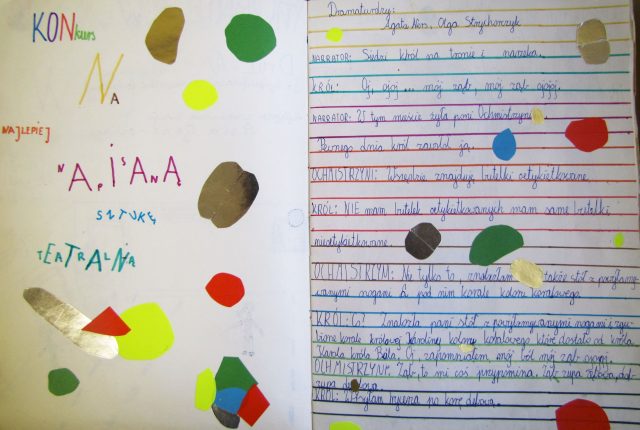 KONkurs
NA
NAJLEPIEJ
NAPISANĄ
SZTUKĘ
TEATRALNĄ
Dramaturdzy:
Agata Nors, Olga Strychorczyk
NARRATOR: Siedzi król na tronie i narzeka.
KRÓL: Oj, ojoj... mój ząb, mój ząb ojojoj.
NARRATOR: W tym mieście żyła pani Ochmistrzyni
Pewnego dnia król zawołał ją.
OCHMISTRZYNI: Wszędzie znajduję butelki
KRÓL: NIE mam butelek mam same butelki
OCHMISTRZYNI: Nie tylko to, znalazłam także stół z
nogami a pod nim korale koloru koralowego.
KRÓL: Znalazła pani stół z nogami i
korale królowej Karoliny koloru koralowego które dostała od króla
Karola króla Bela; Oj zapomniałem mój ból mój ząb ojojoj.
OCHMISTRZYNI: Ząb, to mi coś przypomina. Ząb zupa zębowa, dąb
zupa dębowa.
KRÓL: Wysyłam po korę dębową.